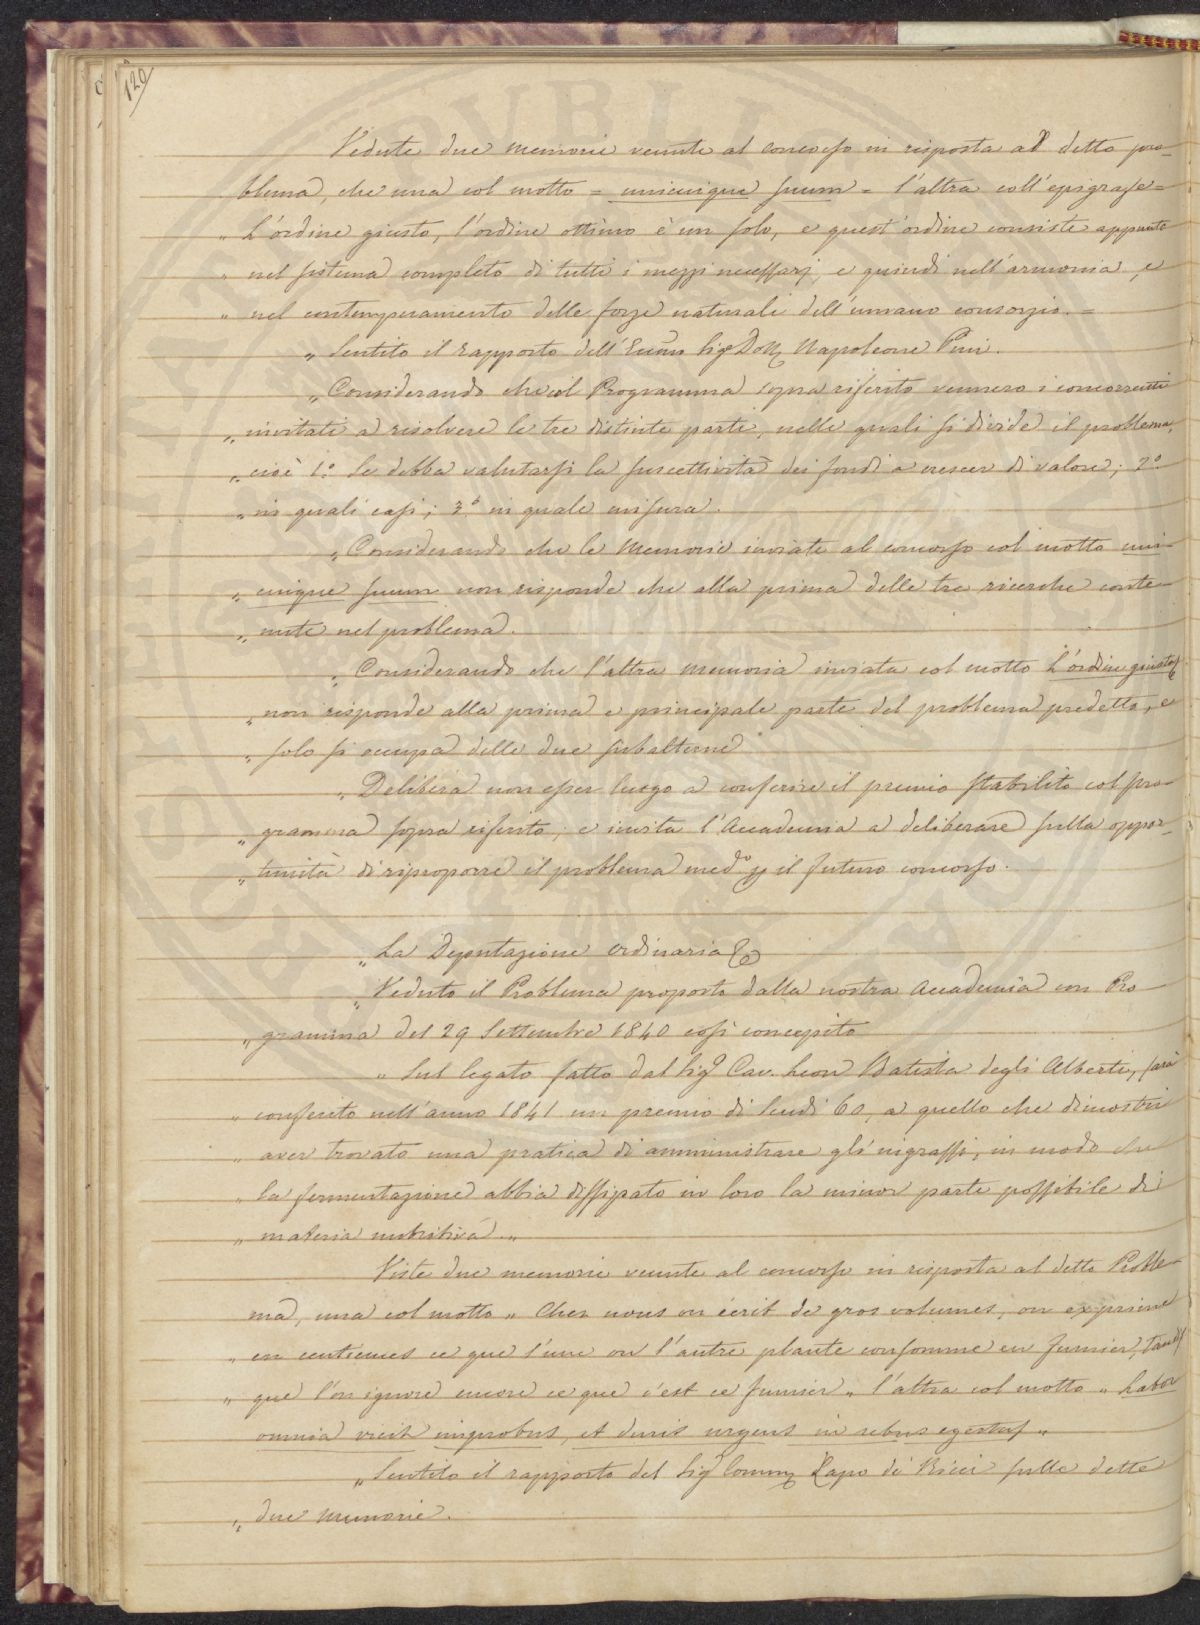 120
Vedute due memorie venute al concorso in risposta al detto pro-
blema, che una col motto = unicuique suum = l'altra coll'epigrafe =
„ L'ordine giusto, l'ordine ottimo è un solo, e quest'ordine consiste appunto
„ nel sistema completo di tutti i mezzi necessarj, e quindi nell'armonia, e
„ nel contemperamento delle forze naturali dell'umano consorzio. =
„ Sentito il rapporto dell'Eccmo Sigr Dott Napoleone Pini.
„ Considerando che col Programma sopra riferito vennero i concorrenti
„ invitati a risolvere le tre distinte parti, nelle quali si divide il problema,
„ cioè 1.° Se debba valutarsi la suscettività dei fondi a crescer di valore; 2.°
„ in quali casi; 3.° in quale misura.
„ Considerando che le Memorie inviate al concorso col motto uni-
„ cuique suum non risponde che alla prima delle tre ricerche conte-
„ nute nel problema.
„ Considerando che l'altra memoria inviata col motto L'ordine giusto
„ non risponde alla prima e principale parte del problema predetto, e
„ solo si occupa delle due subalterne
„ Delibera non esser luogo a conferire il premio stabilito col pro-
„ gramma sopra riferito; e invita l'Accademia a deliberare sulla oppor-
„ tunità di riproporre il problema med.° p il futuro concorso.
„ La Deputazione ordinaria
„ Veduto il Problema proposto dalla nostra Accademia con Pro-
„ gramma del 29 Settembre 1840 così concepito
„ Sul legato fatto dal Sigr Cav. Leon Batista degli Alberti, sarà
„ conferito nell'anno 1841 un premio di Scudi 60, a quello che dimostri
„ aver trovato una pratica di amministrare gli ingrassi, in modo che
„ la fermentazione abbia dissipato in loro la minor parte possibile di
„ materia nutritiva. „
Viste due memorie venute al concorso in risposta al detto Proble-
ma, una col motto „ Chez nous on écrit de gros volumes, on exprime
„ en centiemes ce que l'une ou l'autre plante consomme en fumier, tandis
„ que l'on ignore encore ce que c'est ce fumier „ l'altra col motto „ Labor
omnia vicit improbus, et duris urgens in rebus egestas „
„ Sentito il rapporto del Sigr Comm Lapo de' Ricci sulle dette
„ due memorie.